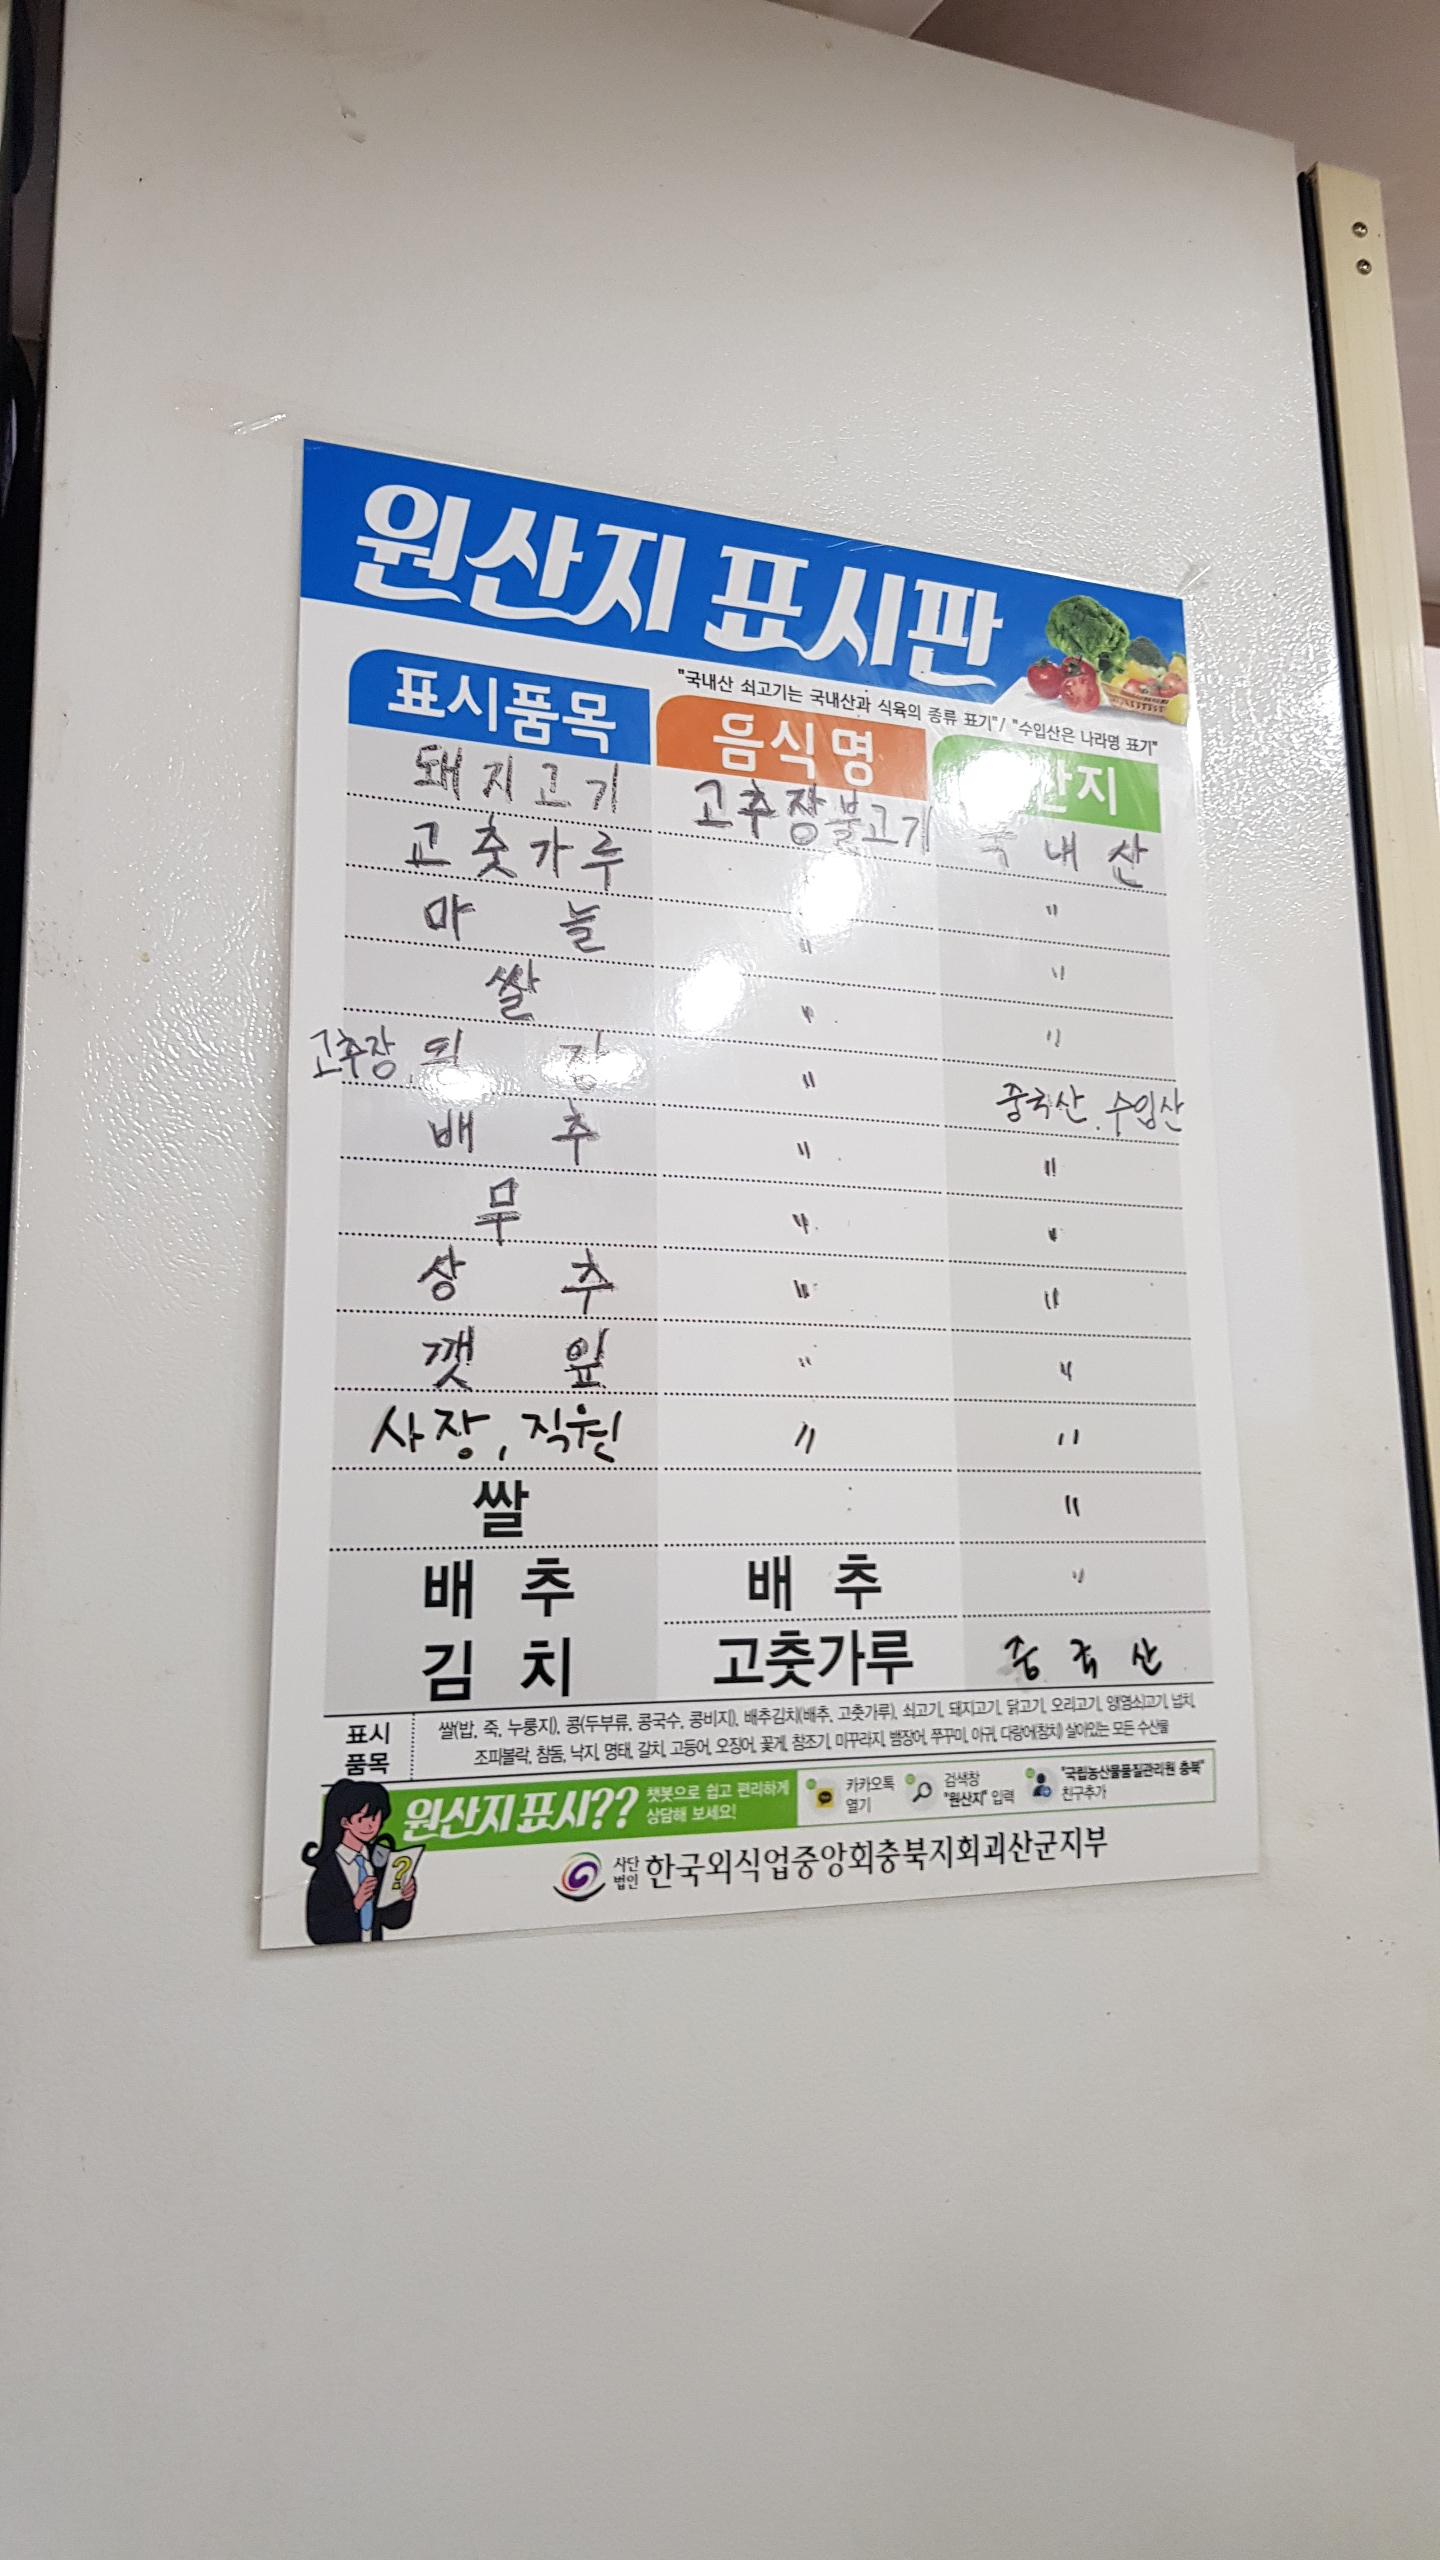 원산지 표시판
"국내산 쇠고기는 국내산과 식육의 종류 표기"/ "수입산은 나라명 표기"
표시품목 음식명 산지
돼지고기 고추장불고기 국내산
고춧가루 "
마늘 " "
쌀 " "
고추장, 된장 " 중국산, 수입산
배추 " "
무 " "
상추 " "
깻잎 " "
사장, 직원 " "
쌀 "
배추 배추 "
김치 고춧가루 중국산
표시 품목
쌀(밥, 죽, 누룽지), 콩(두부류, 콩국수, 콩비지), 배추김치(배추, 고춧가루), 쇠고기, 돼지고기, 닭고기, 오리고기, 양(염소)고기, 넙치,
조피볼락, 참돔, 낙지, 명태, 갈치, 고등어, 오징어, 꽃게, 참조기, 미꾸라지, 뱀장어, 쭈꾸미, 아귀, 다랑어(참치) 살아있는 모든 수산물
원산지 표시?? 챗봇으로 쉽고 편리하게
상담해 보세요!
카카오톡
열기
검색창
"원산지" 입력
"국립농산물품질관리원 충북"
친구추가
?
사단
법인
한국외식업중앙회충북지회괴산군지부